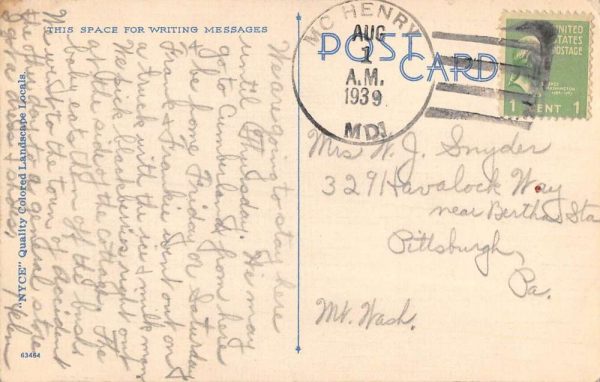 THIS SPACE FOR WRITING MESSAGES
POST CARD
MC HENRY
AUG
1
A.M.
1939
MD.
UNITED
STATES
POSTAGE
1 CENT 1
Mrs W. J. Snyder
329 Havalock Way
near Bertha Sta
Pittsburgh,
Pa.
Mt. Wash.
We are going to stay here
until Thursday. We may
go to Cumberland from here
& be home Friday or Saturday
Frank & Frankie went out on
truck with the ice & milk man
We pick blackberries right out
at the side of the cottage. The
baby eats them off the bush
We went to the town of Accident
the other day to a general store
& got dresses & shoes,
"NYCE" Quality Colored Landscape Locals.
63464